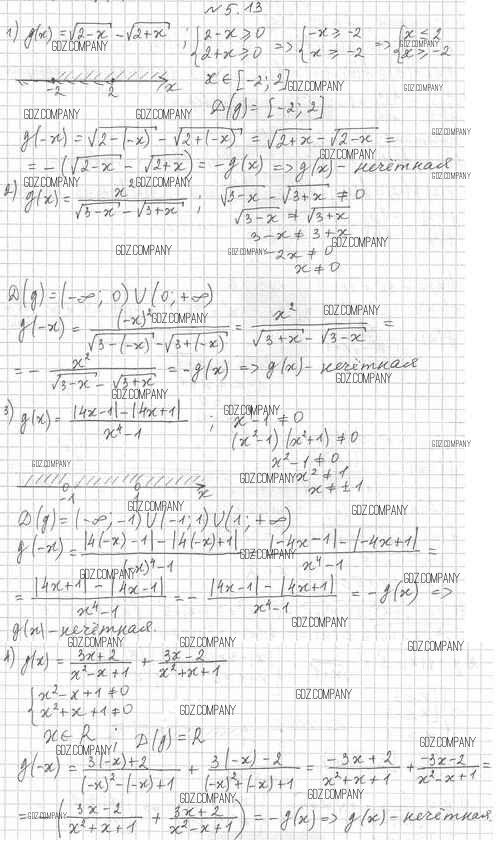 №5.13
1) g(x)=√(2-x) - √(2+x) ; {2-x≥0 2+x≥0 => {-x≥-2 x≥-2 => {x≤2 x≥-2
-2 2 x x∈[-2;2]
D(g)=[-2;2]
g(-x)=√(2-(-x)) - √(2+(-x)) = √(2+x) - √(2-x) =
= -(√(2-x) - √(2+x)) = -g(x) => g(x) - нечётная
2) g(x)= x²/(√(3-x) - √(3+x)) ; √(3-x) - √(3+x) ≠ 0
√(3-x) ≠ √(3+x)
3-x ≠ 3+x
-2x ≠ 0
x ≠ 0
D(g)=(-∞; 0) ∪ (0; +∞)
g(-x) = (-x)²/(√(3-(-x)) - √(3+(-x))) = x²/(√(3+x) - √(3-x)) =
= - x²/(√(3-x) - √(3+x)) = -g(x) => g(x) - нечётная
3) g(x)= (|4x-1|-|4x+1|)/(x⁴-1) ; x⁴-1≠0
(x²-1)(x²+1)≠0
x²-1≠0
x²≠1
x≠±1
-1 1 x
D(g)=(-∞;-1)∪(-1;1)∪(1;+∞)
g(-x)= (|4(-x)-1|-|4(-x)+1|)/((-x)⁴-1) = (|-4x-1|-|-4x+1|)/(x⁴-1) =
= (|4x+1|-|4x-1|)/(x⁴-1) = - (|4x-1|-|4x+1|)/(x⁴-1) = -g(x) =>
g(x) - нечётная.
4) g(x)= (3x+2)/(x²-x+1) + (3x-2)/(x²+x+1)
{x²-x+1≠0
x²+x+1≠0
x∈R ; D(g)=R
g(-x)= (3(-x)+2)/((-x)²-(-x)+1) + (3(-x)-2)/((-x)²+(-x)+1) = (-3x+2)/(x²+x+1) + (-3x-2)/(x²-x+1) =
= -((3x-2)/(x²+x+1) + (3x+2)/(x²-x+1)) = -g(x) => g(x) - нечётная
GDZ.COMPANY